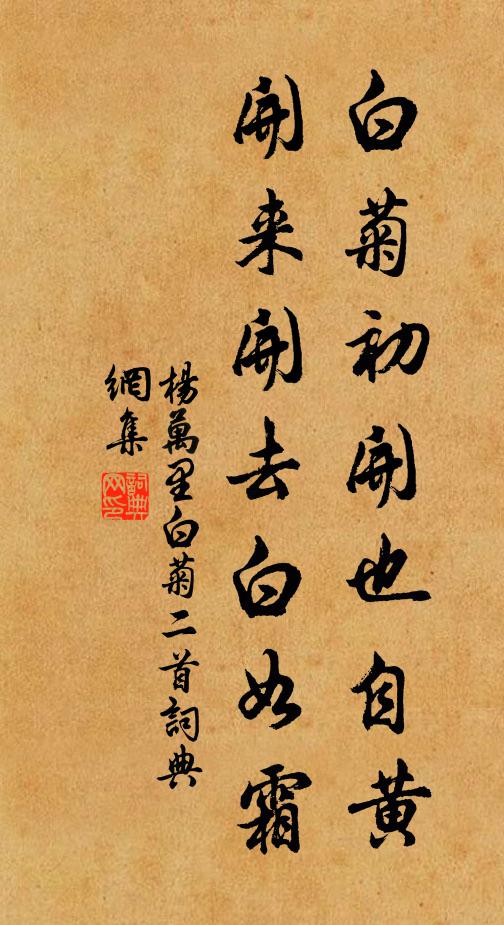 白菊初開也自黃
開來開去白如霜
楊萬里白菊二首詞典
網集
詞典
网印